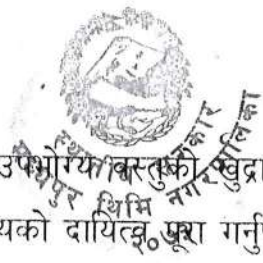 स्थानीय सरकार
मध्यपुर थिमि नगरपालिका
उपभोग्य वस्तुको खुद्रा
यको दायित्व पूरा गर्नुप